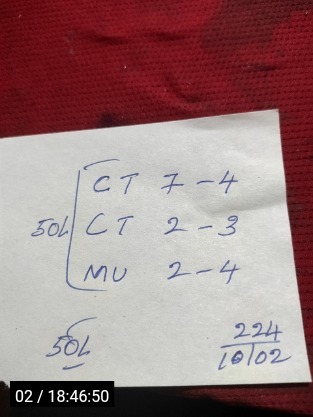 CT 7-4
50L CT 2-3
MU 2-4
50L
224
10/02
02 / 18:46:50